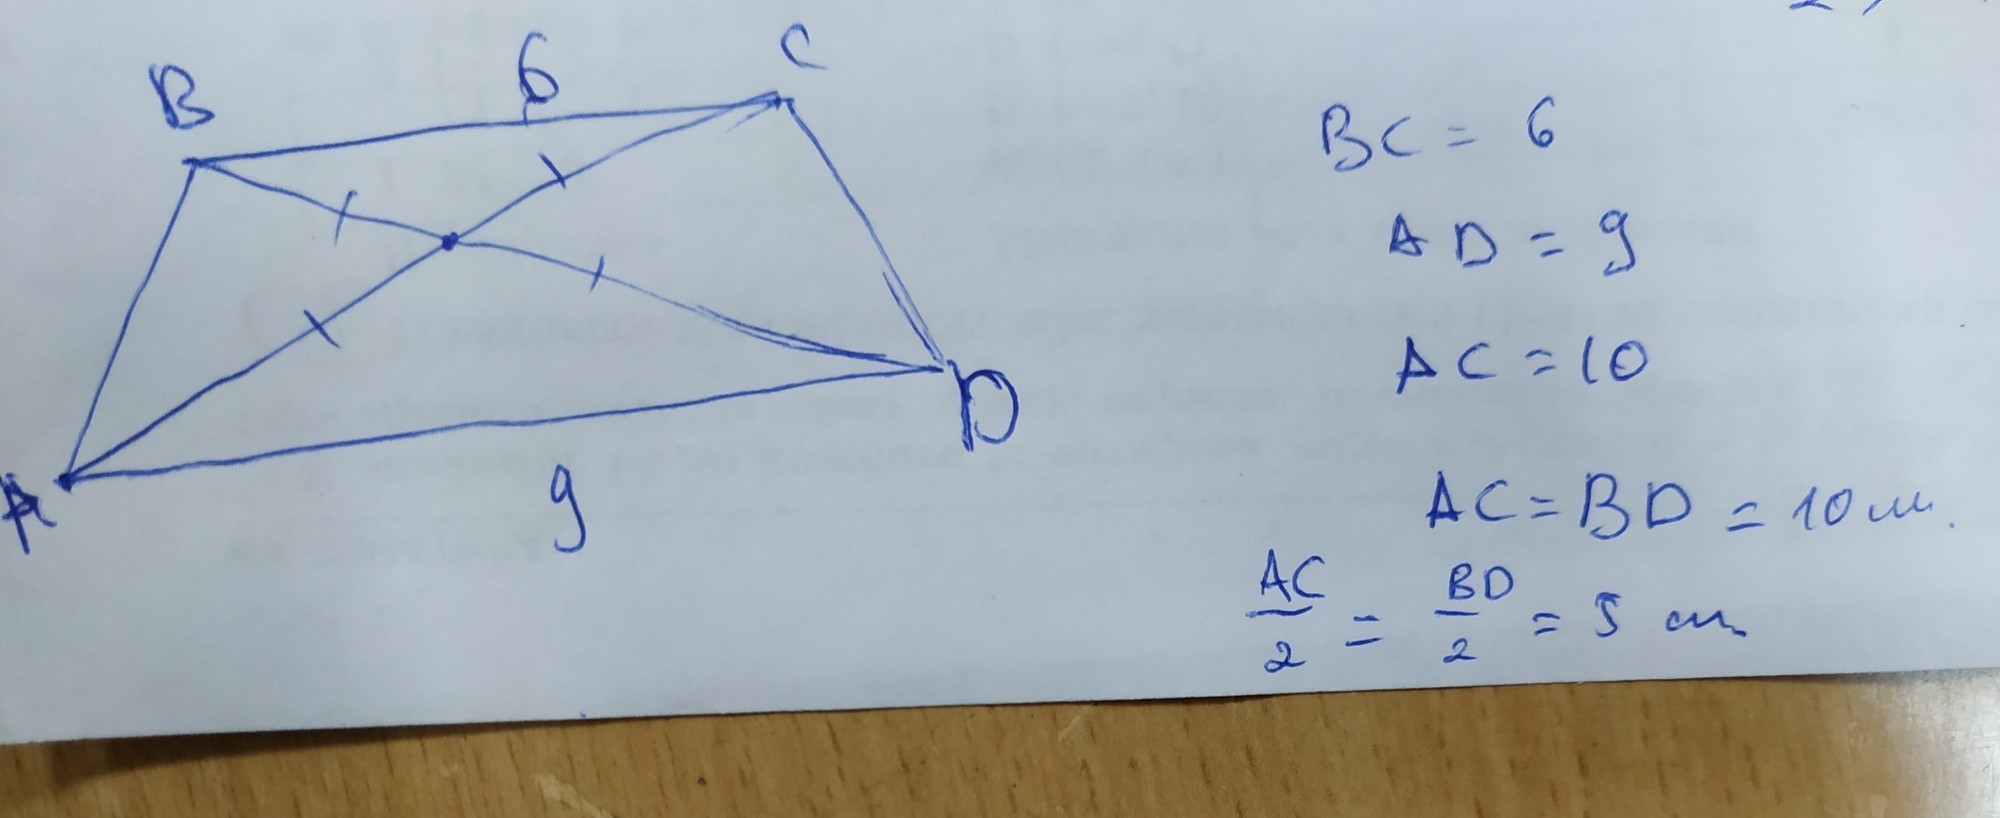 B 6 C
A 9 D
BC = 6
AD = 9
AC = 10
AC = BD = 10 см.
AC/2 = BD/2 = 5 см